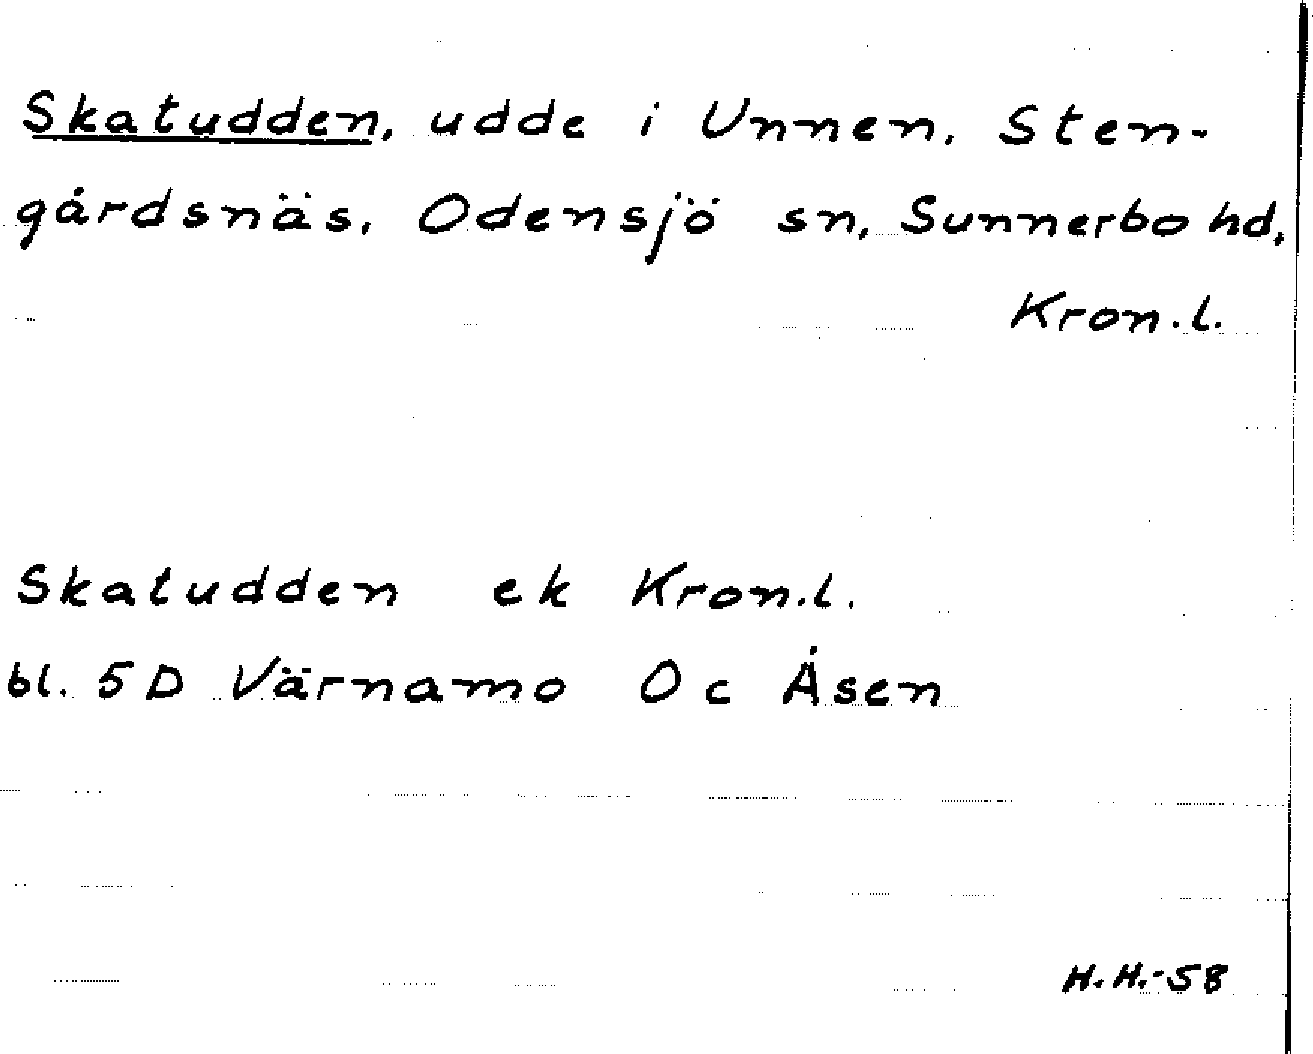 Skatudden, udde i Unnen, Sten-
gårdsnäs, Odensjö sn, Sunnerbo hd,
Kron.l.
Skatudden ek Kron.l.
bl. 5D Värnamo 0c Åsen
H.H.-58